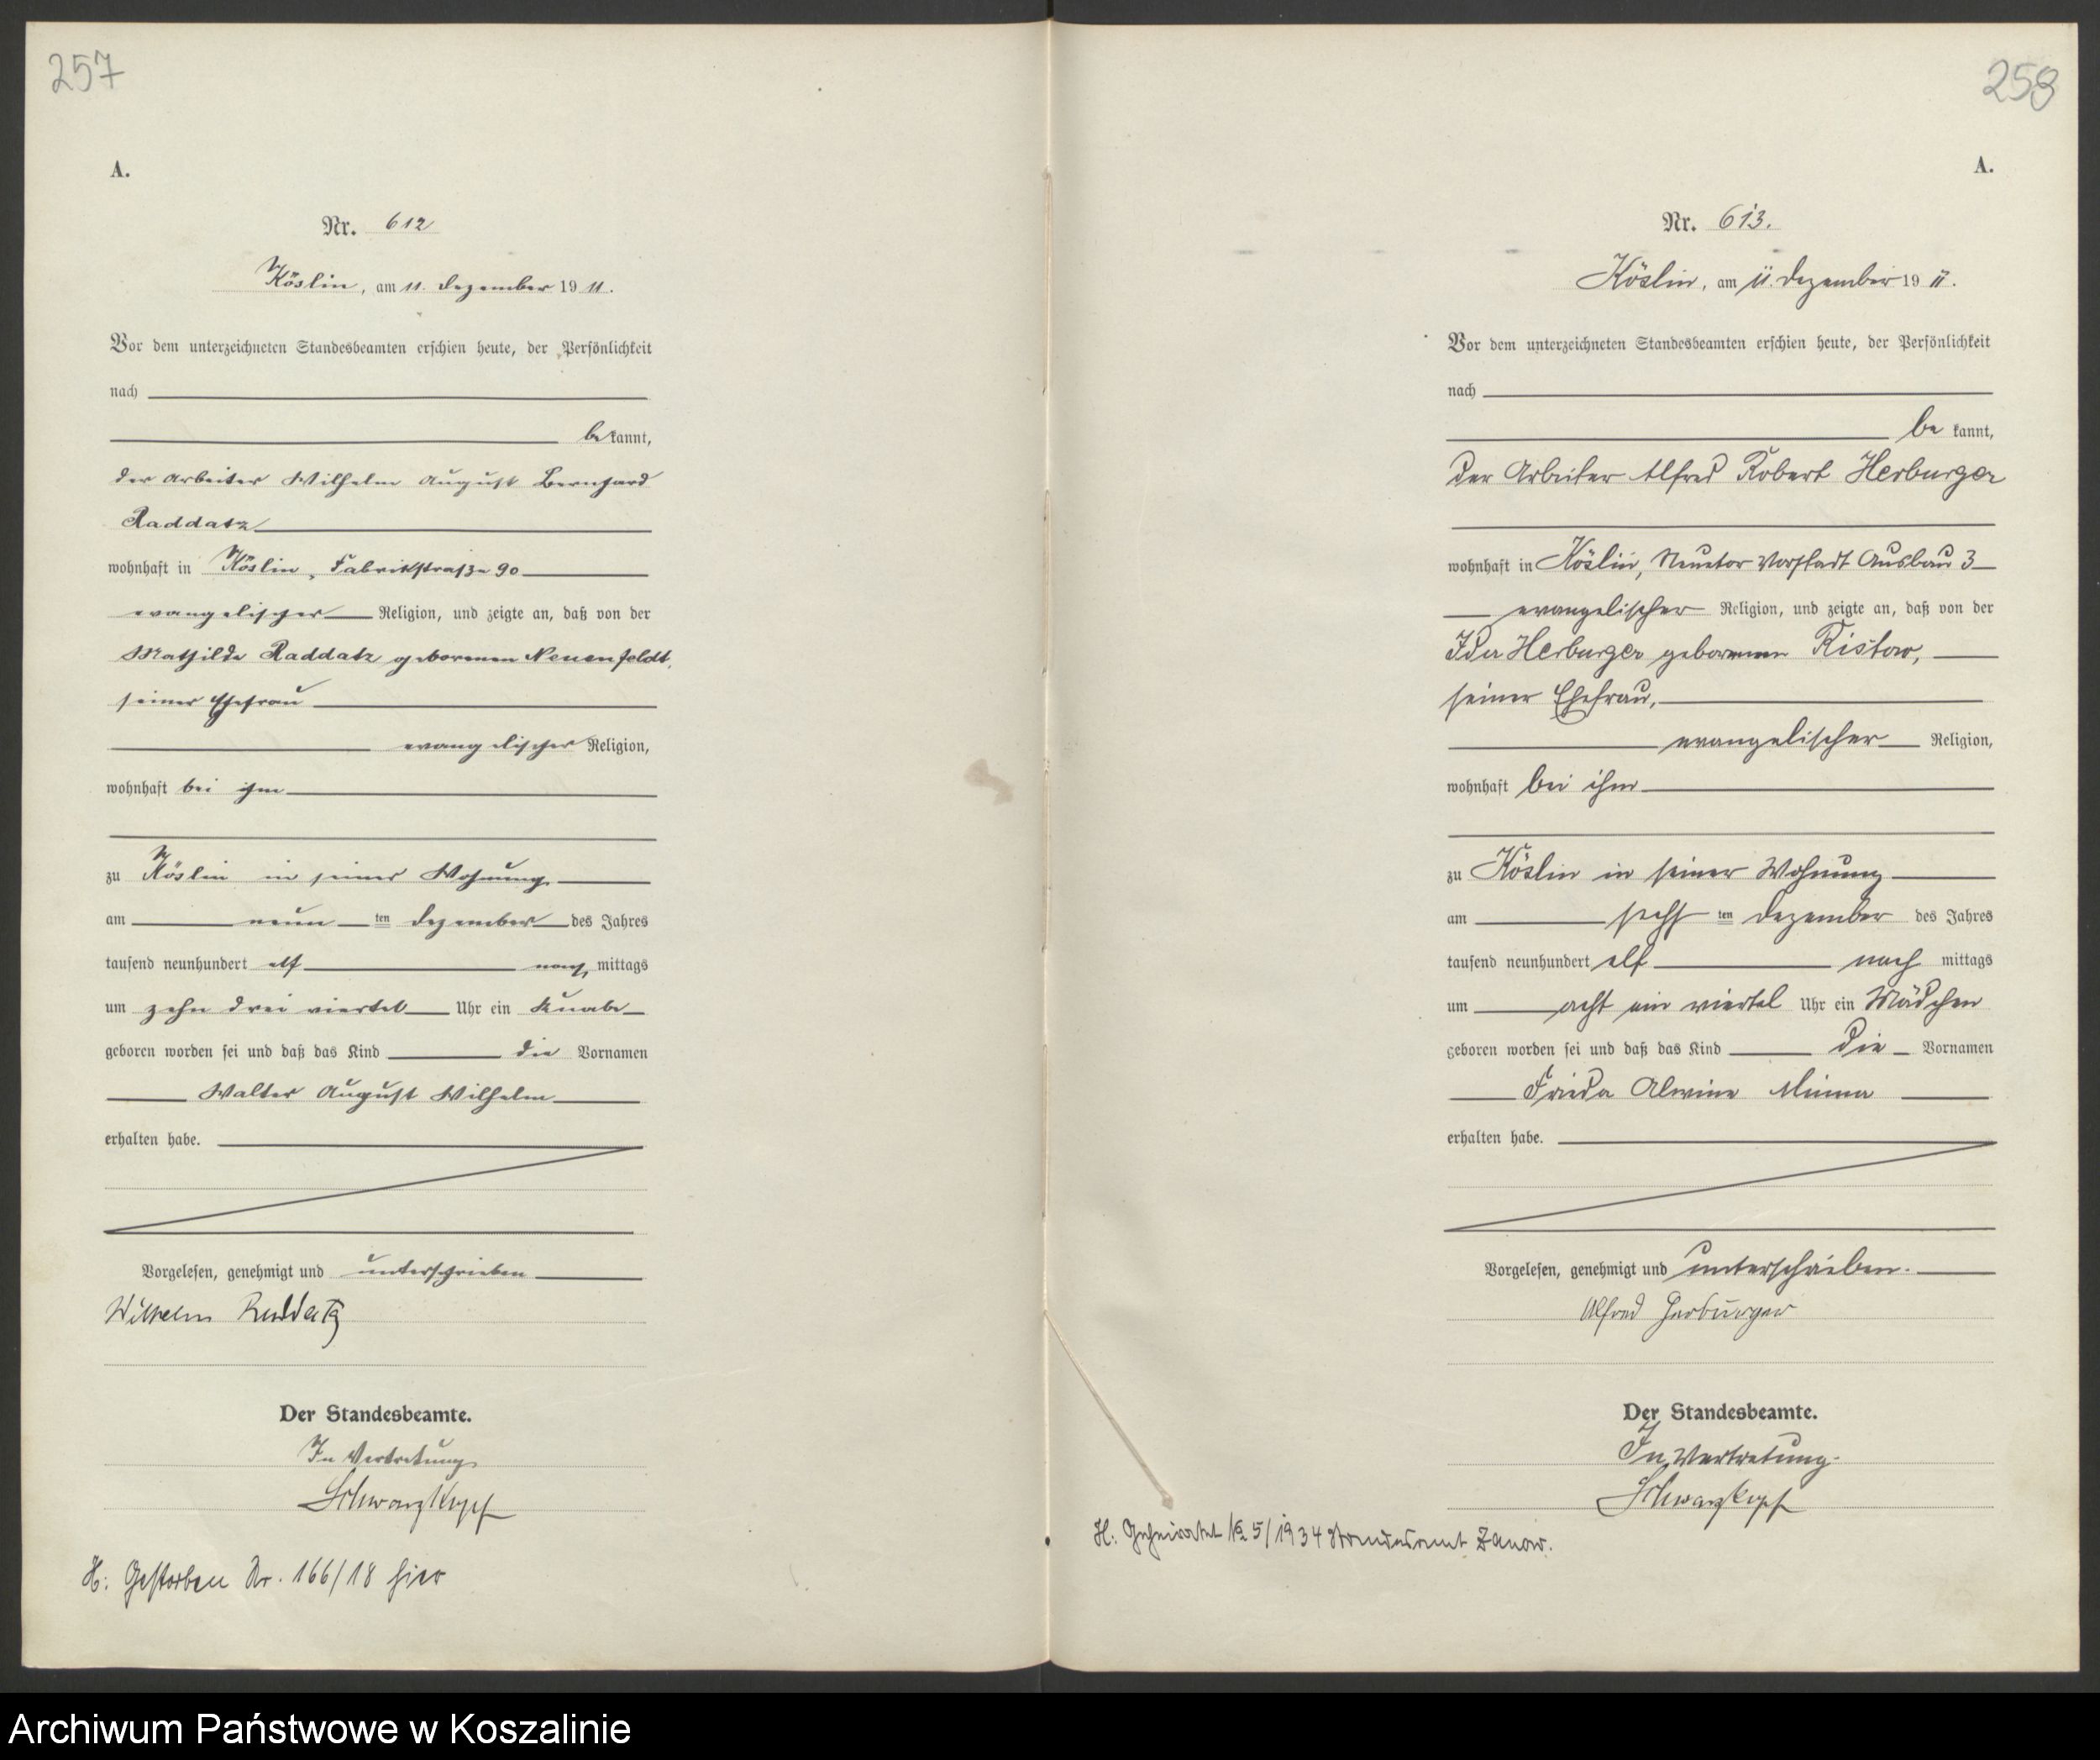 257
A.
Nr. 612
Köslin, am 11. Dezember 1911.
Vor dem unterzeichneten Standesbeamten erschien heute, der Persönlichkeit
nach
bekannt,
der Arbeiter Wilhelm August Bernhard
Raddatz
wohnhaft in Köslin, Fabrikstraße 90
evangelischer Religion, und zeigte an, daß von der
Mathilde Raddatz geborenen Neuenfeldt,
seiner Ehefrau
evangelischer Religion,
wohnhaft bei ihm
zu Köslin in seiner Wohnung
am neun ten Dezember des Jahres
tausend neunhundert elf nach mittags
um zehn drei viertel Uhr ein Knabe
geboren worden sei und daß das Kind die Vornamen
Walter August Wilhelm
erhalten habe.
Vorgelesen, genehmigt und unterschrieben
Wilhelm Raddatz
Der Standesbeamte.
In Vertretung
Schwarzkopf
H: Gestorben Nr. 166/18 hier
258
A.
Nr. 613.
Köslin, am 11. Dezember 1911.
Vor dem unterzeichneten Standesbeamten erschien heute, der Persönlichkeit
nach
bekannt,
der Arbeiter Alfred Robert Herburger
wohnhaft in Köslin, Neuetor Vorstadt Ausbau 3
evangelischer Religion, und zeigte an, daß von der
Ida Herburger geborenen Ristow,
seiner Ehefrau,
evangelischer Religion,
wohnhaft bei ihm
zu Köslin in seiner Wohnung
am sechs ten Dezember des Jahres
tausend neunhundert elf nach mittags
um acht ein viertel Uhr ein Mädchen
geboren worden sei und daß das Kind die Vornamen
Frieda Alwine Minna
erhalten habe.
Vorgelesen, genehmigt und unterschrieben.
Alfred Herburger
Der Standesbeamte.
In Vertretung.
Schwarzkopf
H: Geheiratet № 5/1934 Standesamt Zanow.
Archiwum Państwowe w Koszalinie